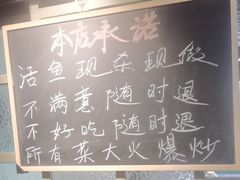 本店承诺
活鱼现杀现做
不满意随时退
不好吃随时退
所有菜大火爆炒